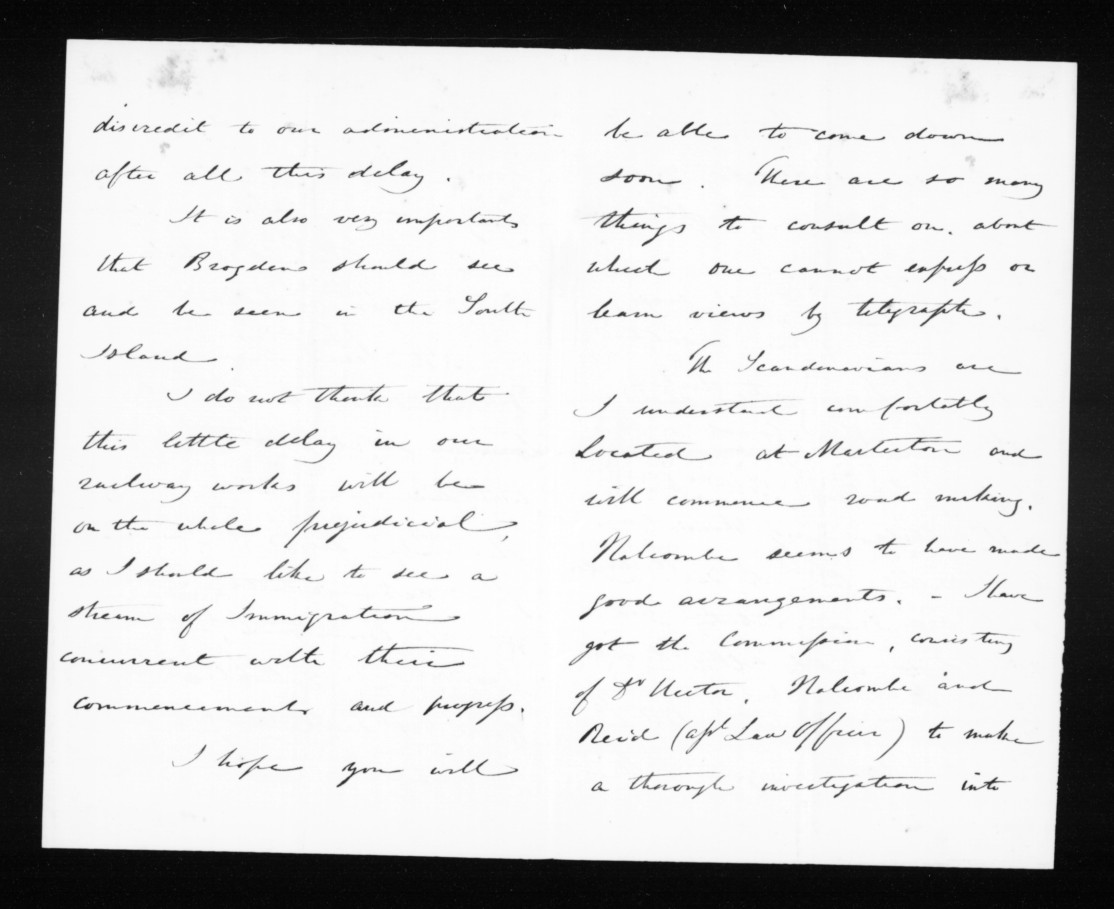 discredit to our administration
after all this delay.
It is also very important
that Brogdens should see
and be seen in the South
Island.
I do not think that
this little delay in our
railway works will be
on the whole prejudicial,
as I should like to see a
stream of Immigration
concurrent with their
commencement and progress.
I hope you will
be able to come down
soon. There are so many
things to consult on, about
which one cannot express or
learn views by telegraph.
The Scandinavians are
I understand comfortably
located at Masterton and
will commence road making.
Halcombe seems to have made
good arrangements. - I have
got the Commission, consisting
of Dr Hector, Halcombe and
Reid (asst Law Officer) to make
a thorough investigation into